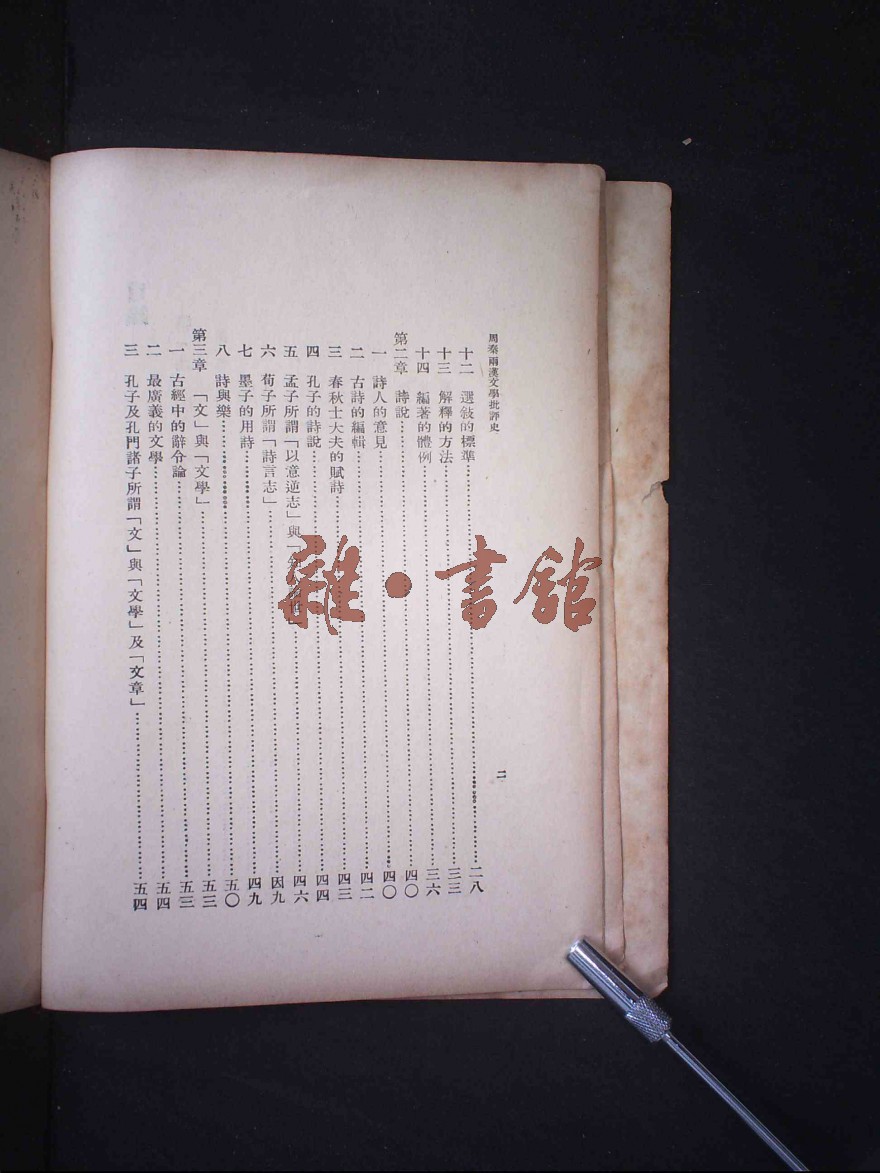 周秦兩漢文學批評史
二
十二 選敍的標準……二八
十三 解釋的方法……三三
十四 編著的體例……三六
第二章 詩說……四〇
一 詩人的意見……四〇
二 古詩的編輯……四二
三 春秋士大夫的賦詩……四三
四 孔子的詩說……四四
五 孟子所謂「以意逆志」與「……四六
六 荀子所謂「詩言志」……因九
七 墨子的用詩……四九
八 詩與樂……五〇
第三章 「文」與「文學」……五三
一 古經中的辭令論……五三
二 最廣義的文學……五四
三 孔子及孔門諸子所謂「文」與「文學」及「文章」……五四
雜·書館